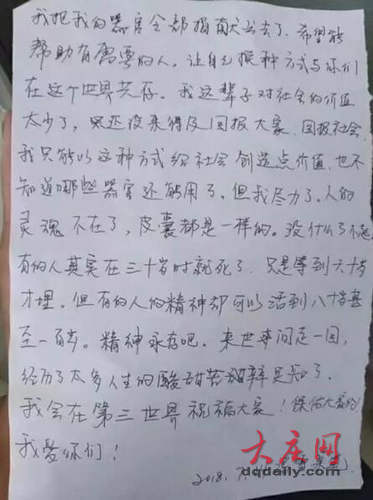 我把我的器官全部捐献出去了.希望能
帮助有需要的人,让自己换种方式与你们
在这个世界共存。我这辈子对社会的价值
太少了,还没来得及回报大家、回报社会
我只能以这种方式给社会创造点价值,也不
知道哪些器官还能用了.但我尽力了.人的
灵魂不在了,皮囊都是一样的。没什么了不起
有的人其实在三十岁时就死了.只是等到六十岁
才埋.但有的人的精神却可以活到八十岁甚
至一百岁。精神永存吧.来世间走一回,
经历了太多人生的酸甜苦辣是知了.
我会在第三世界祝福大家!保佑大家的
我爱你们!
2018.
大庆网
dqdaily.com